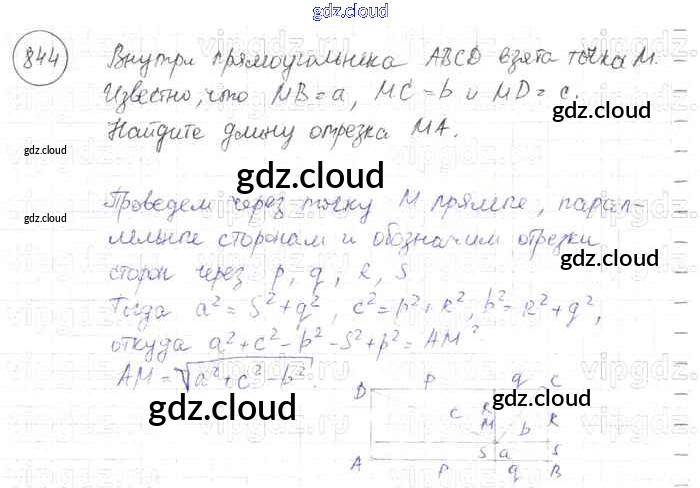 gdz.cloud
844 Внутри прямоугольника ABCD взята точка M.
Известно, что MB = a, MC = b и MD = c.
gdz.cloud
Найдите длину отрезка MA.
gdz.cloud
gdz.cloud
Проведем через точку M прямые, парал-
gdz.cloud
лельные сторонам и обозначим отрезки
gdz.cloud
сторон через p, q, R, S
Тогда a² = S² + q², c² = p² + R², b² = R² + q²,
откуда a² + c² - b² = S² + p² = AM²
AM = √a² + c² - b².
gdz.cloud
gdz.cloud
D p q C
c R M b R
S a S
A p q B
gdz.cloud